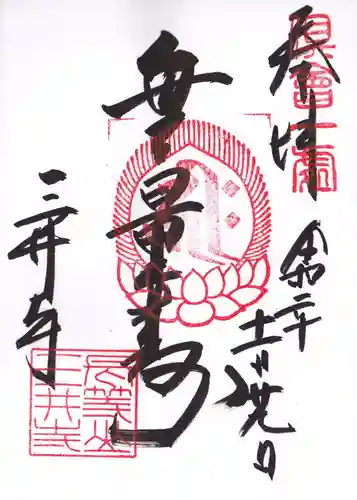 奉拝
令和二年
十一月廿九日
無量寿
三井寺
長等山
三井寺